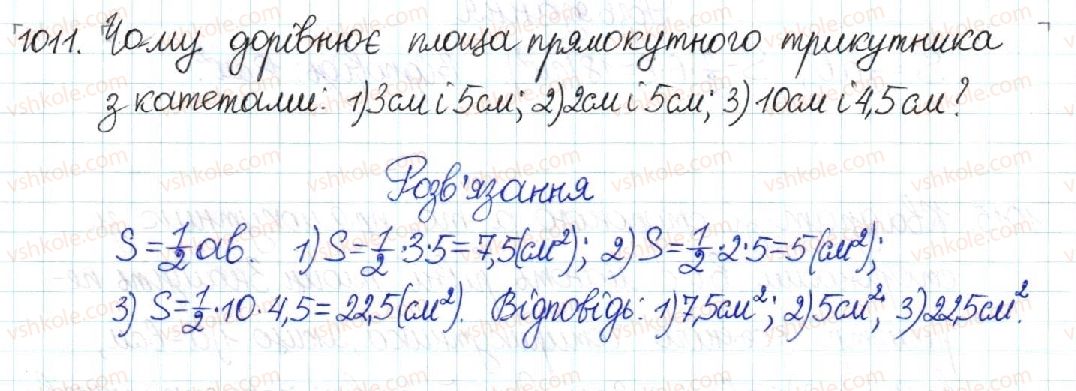 1011. Чому дорівнює площа прямокутного трикутника
з катетами: 1) 3 см і 5 см; 2) 2 см і 5 см; 3) 10 см і 4,5 см?
Розв'язання
S = 1/2 ab. 1) S = 1/2 · 3 · 5 = 7,5 (см²); 2) S = 1/2 · 2 · 5 = 5 (см²);
3) S = 1/2 · 10 · 4,5 = 22,5 (см²). Відповідь: 1) 7,5 см²; 2) 5 см²; 3) 22,5 см².
vshkole.com